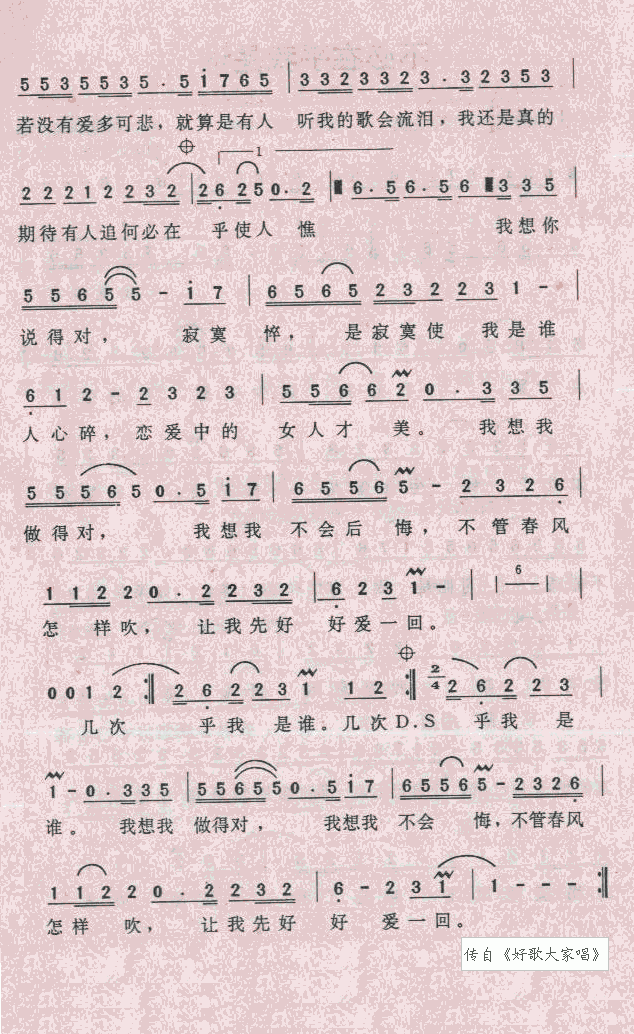 5 5 3 5 5 5 3 5 . 5 1 7 6 5 | 3 3 2 3 3 3 2 3 . 3 2 3 5 3 |
若没有爱多可悲，就算是有人 听我的歌会流泪，我还是真的
1
2 2 2 1 2 2 3 2 | 2 6 2 5 0 . 2 6 . 5 6 . 5 6 3 3 5 |
期待有人追何必在 乎使人 憔 我想你
5 5 6 5 5 - 1 7 | 6 5 6 5 2 3 2 2 3 1 - |
说得对， 寂寞 悴， 是寂寞使 我是谁
6 1 2 - 2 3 2 3 | 5 5 6 6 2 0 . 3 3 5 |
人心碎，恋爱中的 女人才 美。 我想我
5 5 5 6 5 0 . 5 1 7 | 6 5 5 6 5 - 2 3 2 6 |
做得对， 我想我 不会后 悔，不管春风
6
1 1 2 2 0 . 2 2 3 2 | 6 2 3 1 - | |—| |
怎 样吹， 让我先好 好爱一回。
0 0 1 2 :| 2 6 2 2 3 1 1 2 :| 2/4 2 6 2 2 3 |
几次 乎我 是谁。几次D.S 乎我 是
1 - 0 . 3 3 5 | 5 5 6 5 5 0 . 5 1 7 | 6 5 5 6 5 - 2 3 2 6 |
谁。 我想我 做得对， 我想我 不会 悔，不管春风
1 1 2 2 0 . 2 2 3 2 | 6 - 2 3 1 | 1 - - - :|
怎样 吹， 让我先好 好 爱一回。
传自《好歌大家唱》